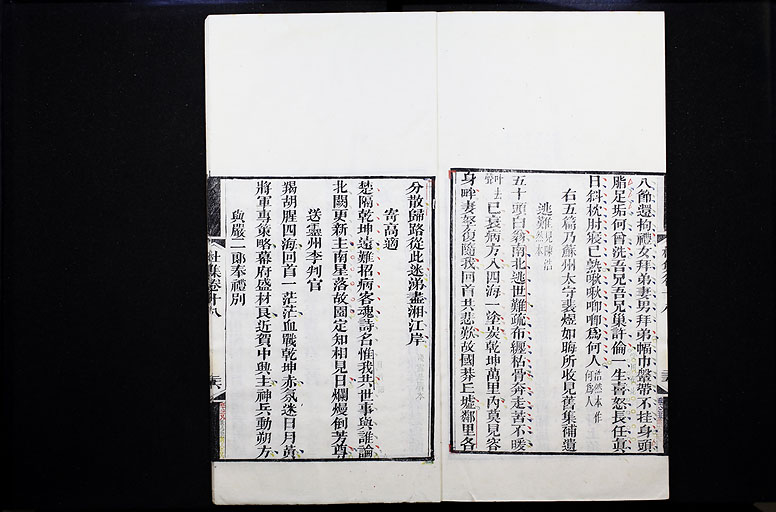 八節還拘禮女拜弟妻男拜弟幅巾鞶帶不挂身頭
脂足垢何曾洗吾兄吾兄巢許倫一生喜怒長任真
日斜枕肘寢已熟啾啾唧唧為何人浩然本作何為人
右五篇乃蘇州太守裴煜如晦所收見舊集補遺
逃難見陳浩然本
五十頭白翁南北逃世難疏布纏枯骨奔走苦不暖
叶去聲已衰病方入四海一塗炭乾坤萬里內莫見容
身畔妻孥復隨我回首共悲歎故國莽丘墟鄰里各
分散歸路從此迷涕盡湘江岸
寄高適
楚隔乾坤遠難招病客魂詩名惟我共世事與誰論
北闕更新主南星落故園定知相見日爛熳倒芳尊
送靈州李判官
羯胡腥四海回首一茫茫血戰乾坤赤氛迷日月黃
將軍專策略幕府盛材良近賀中興主神兵動朔方
與嚴二郎奉禮別
杜集卷十八